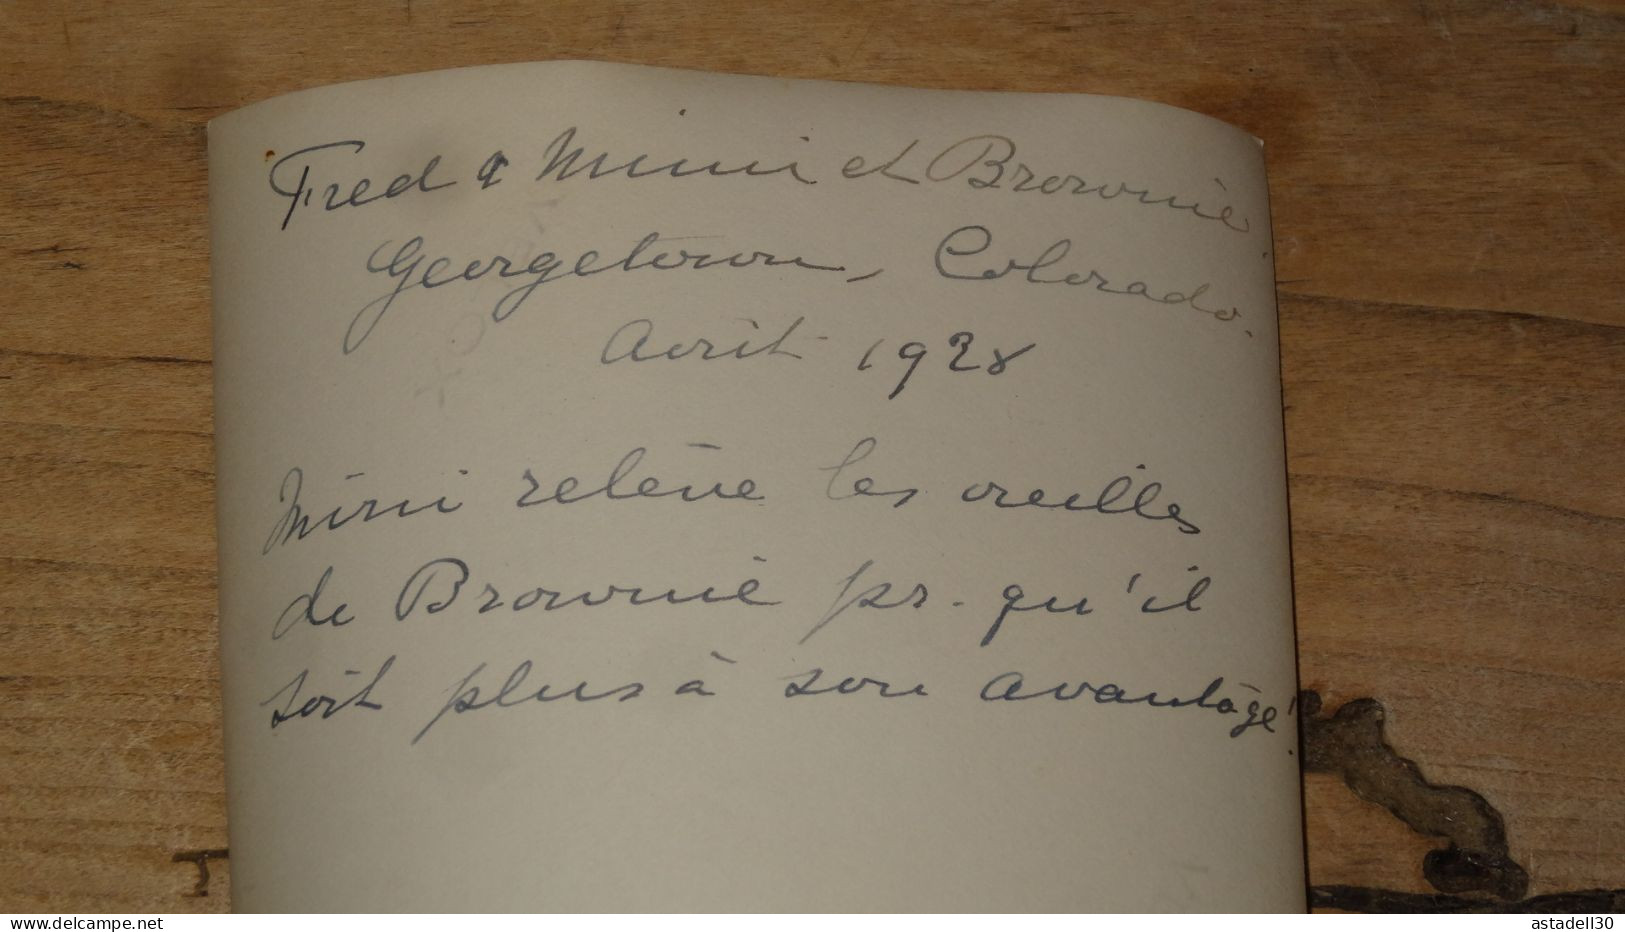 Fred & Mimi et Brownie
Georgetown, Colorado.
Avril 1928
Mimi relève les oreilles
de Brownie pr. qu'il
soit plus à son avantage!
www.delcampe.net
astadell30